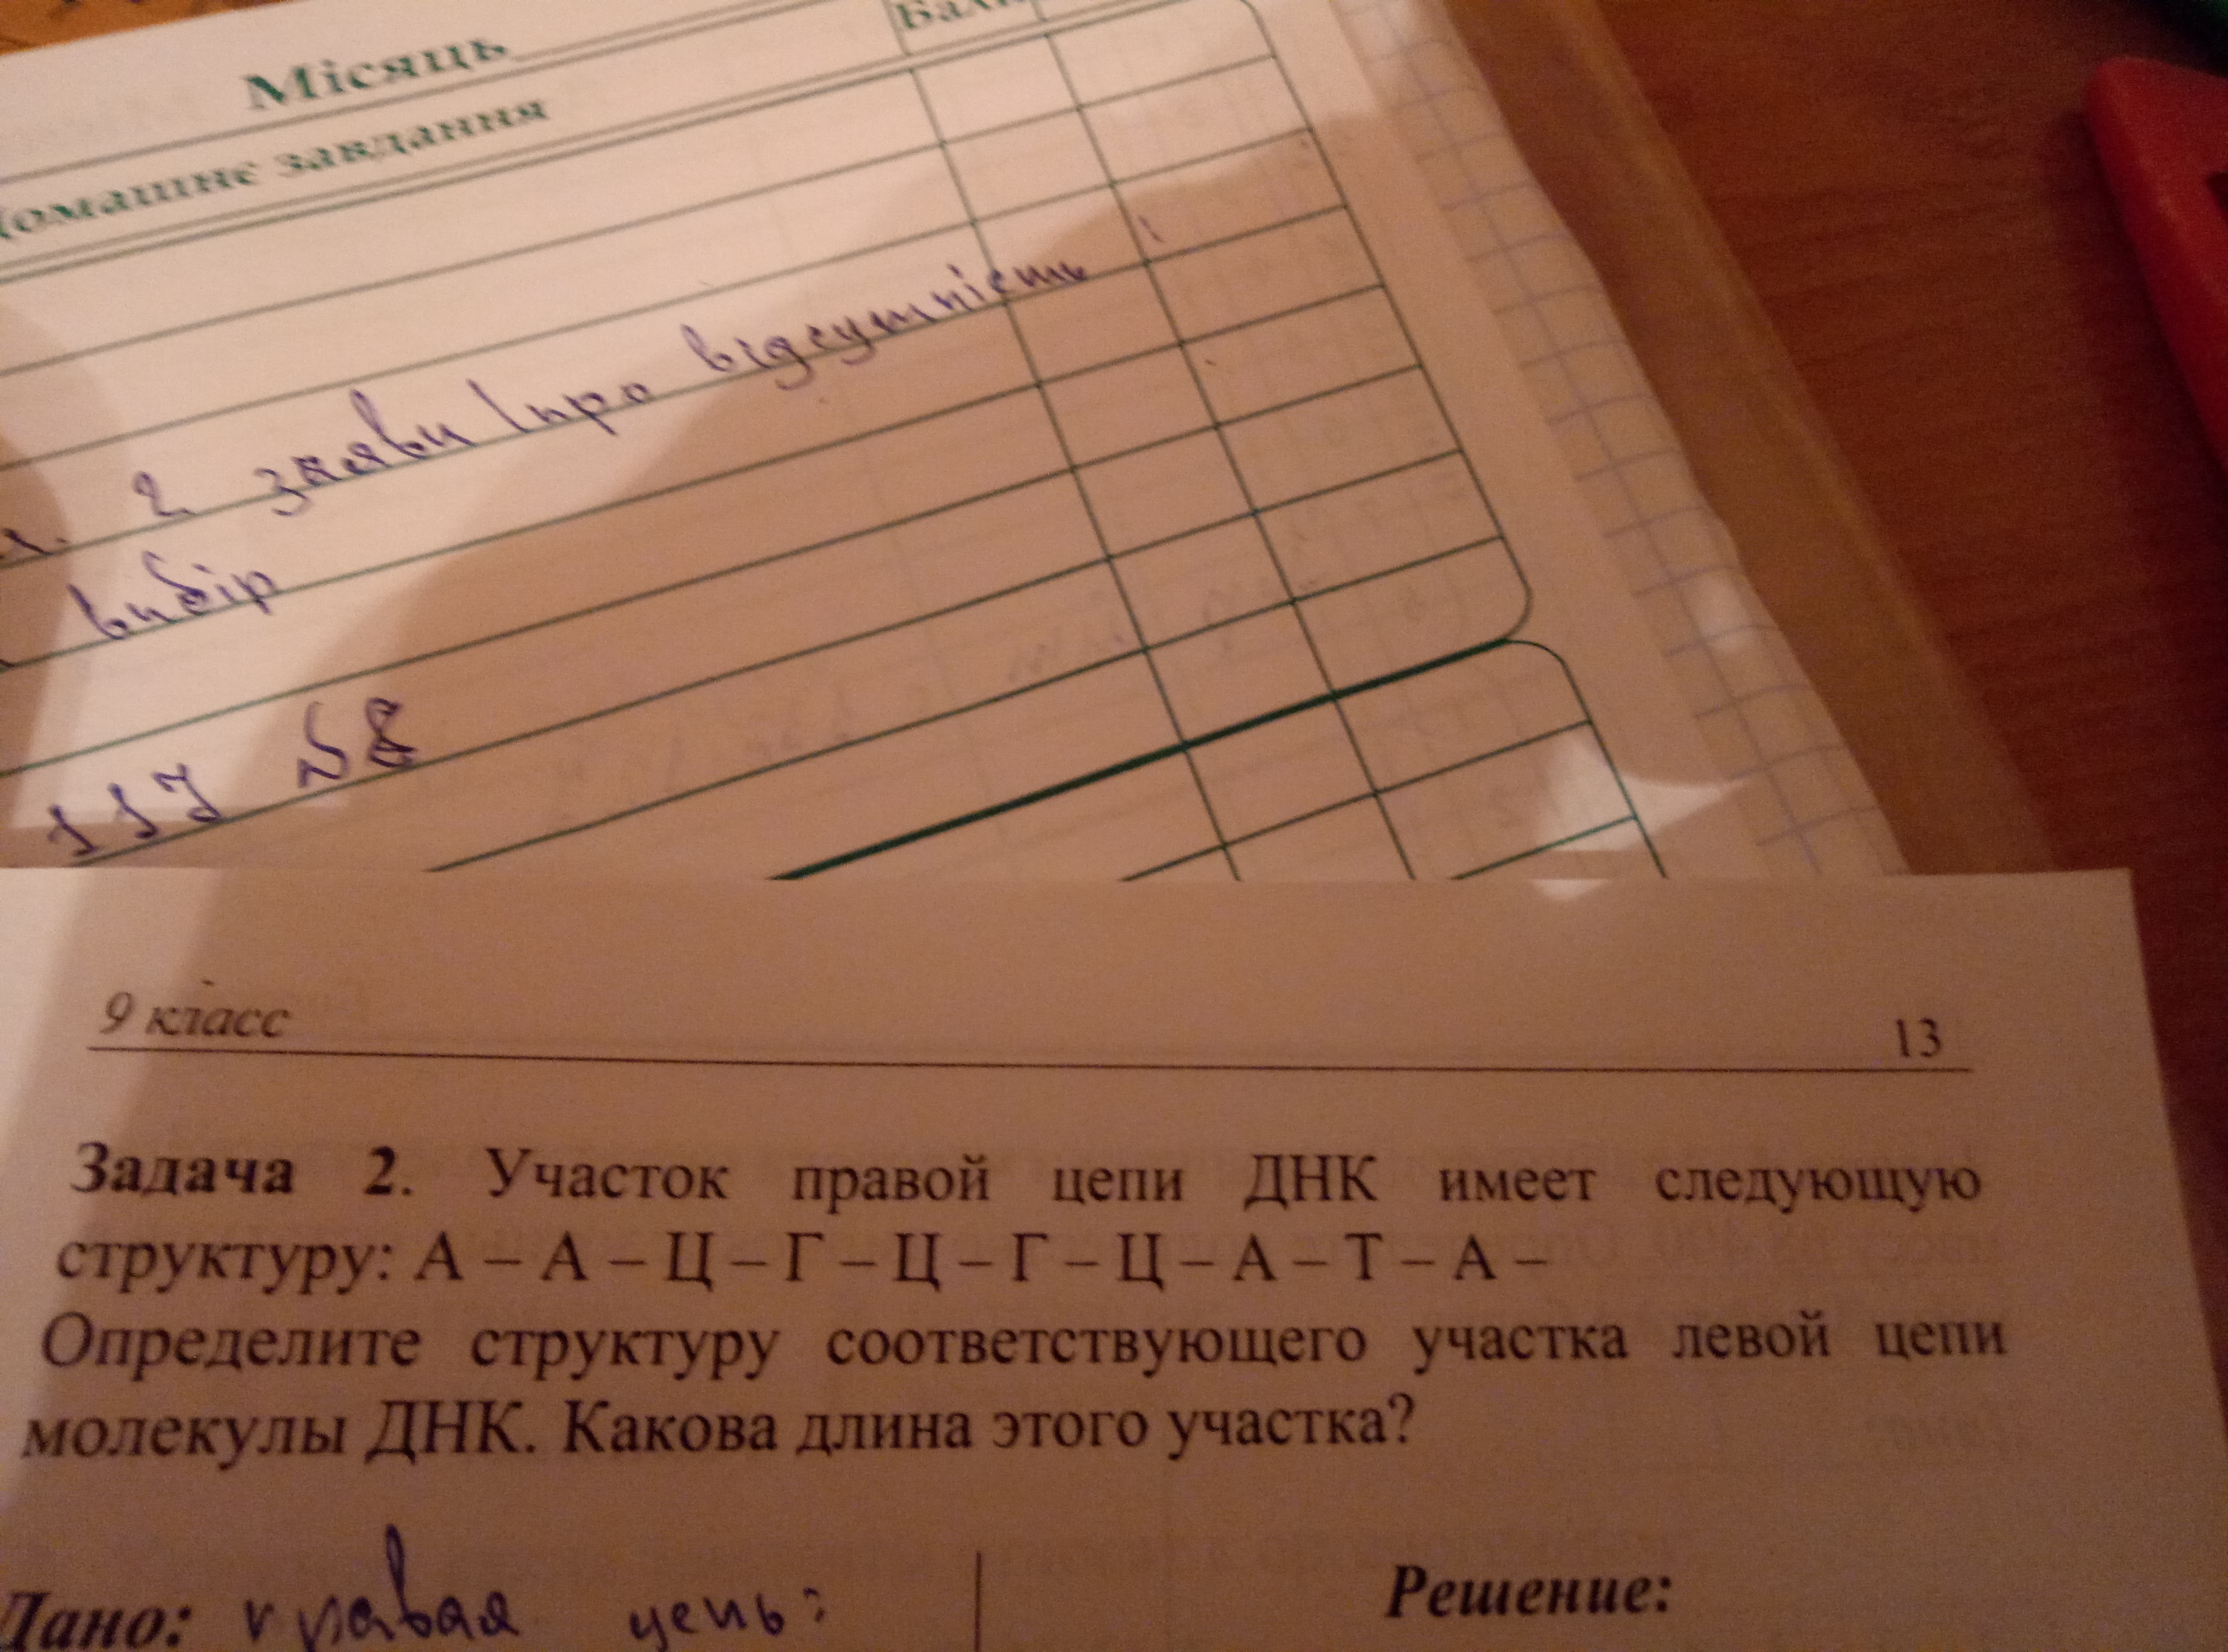 Місяць
Домашнє завдання
2 заяви (про відсутність
вибір
117 №8
9 класс 13
Задача 2. Участок правой цепи ДНК имеет следующую
структуру: А – А – Ц – Г – Ц – Г – Ц – А – Т – А –
Определите структуру соответствующего участка левой цепи
молекулы ДНК. Какова длина этого участка?
Дано: правая цепь: Решение: